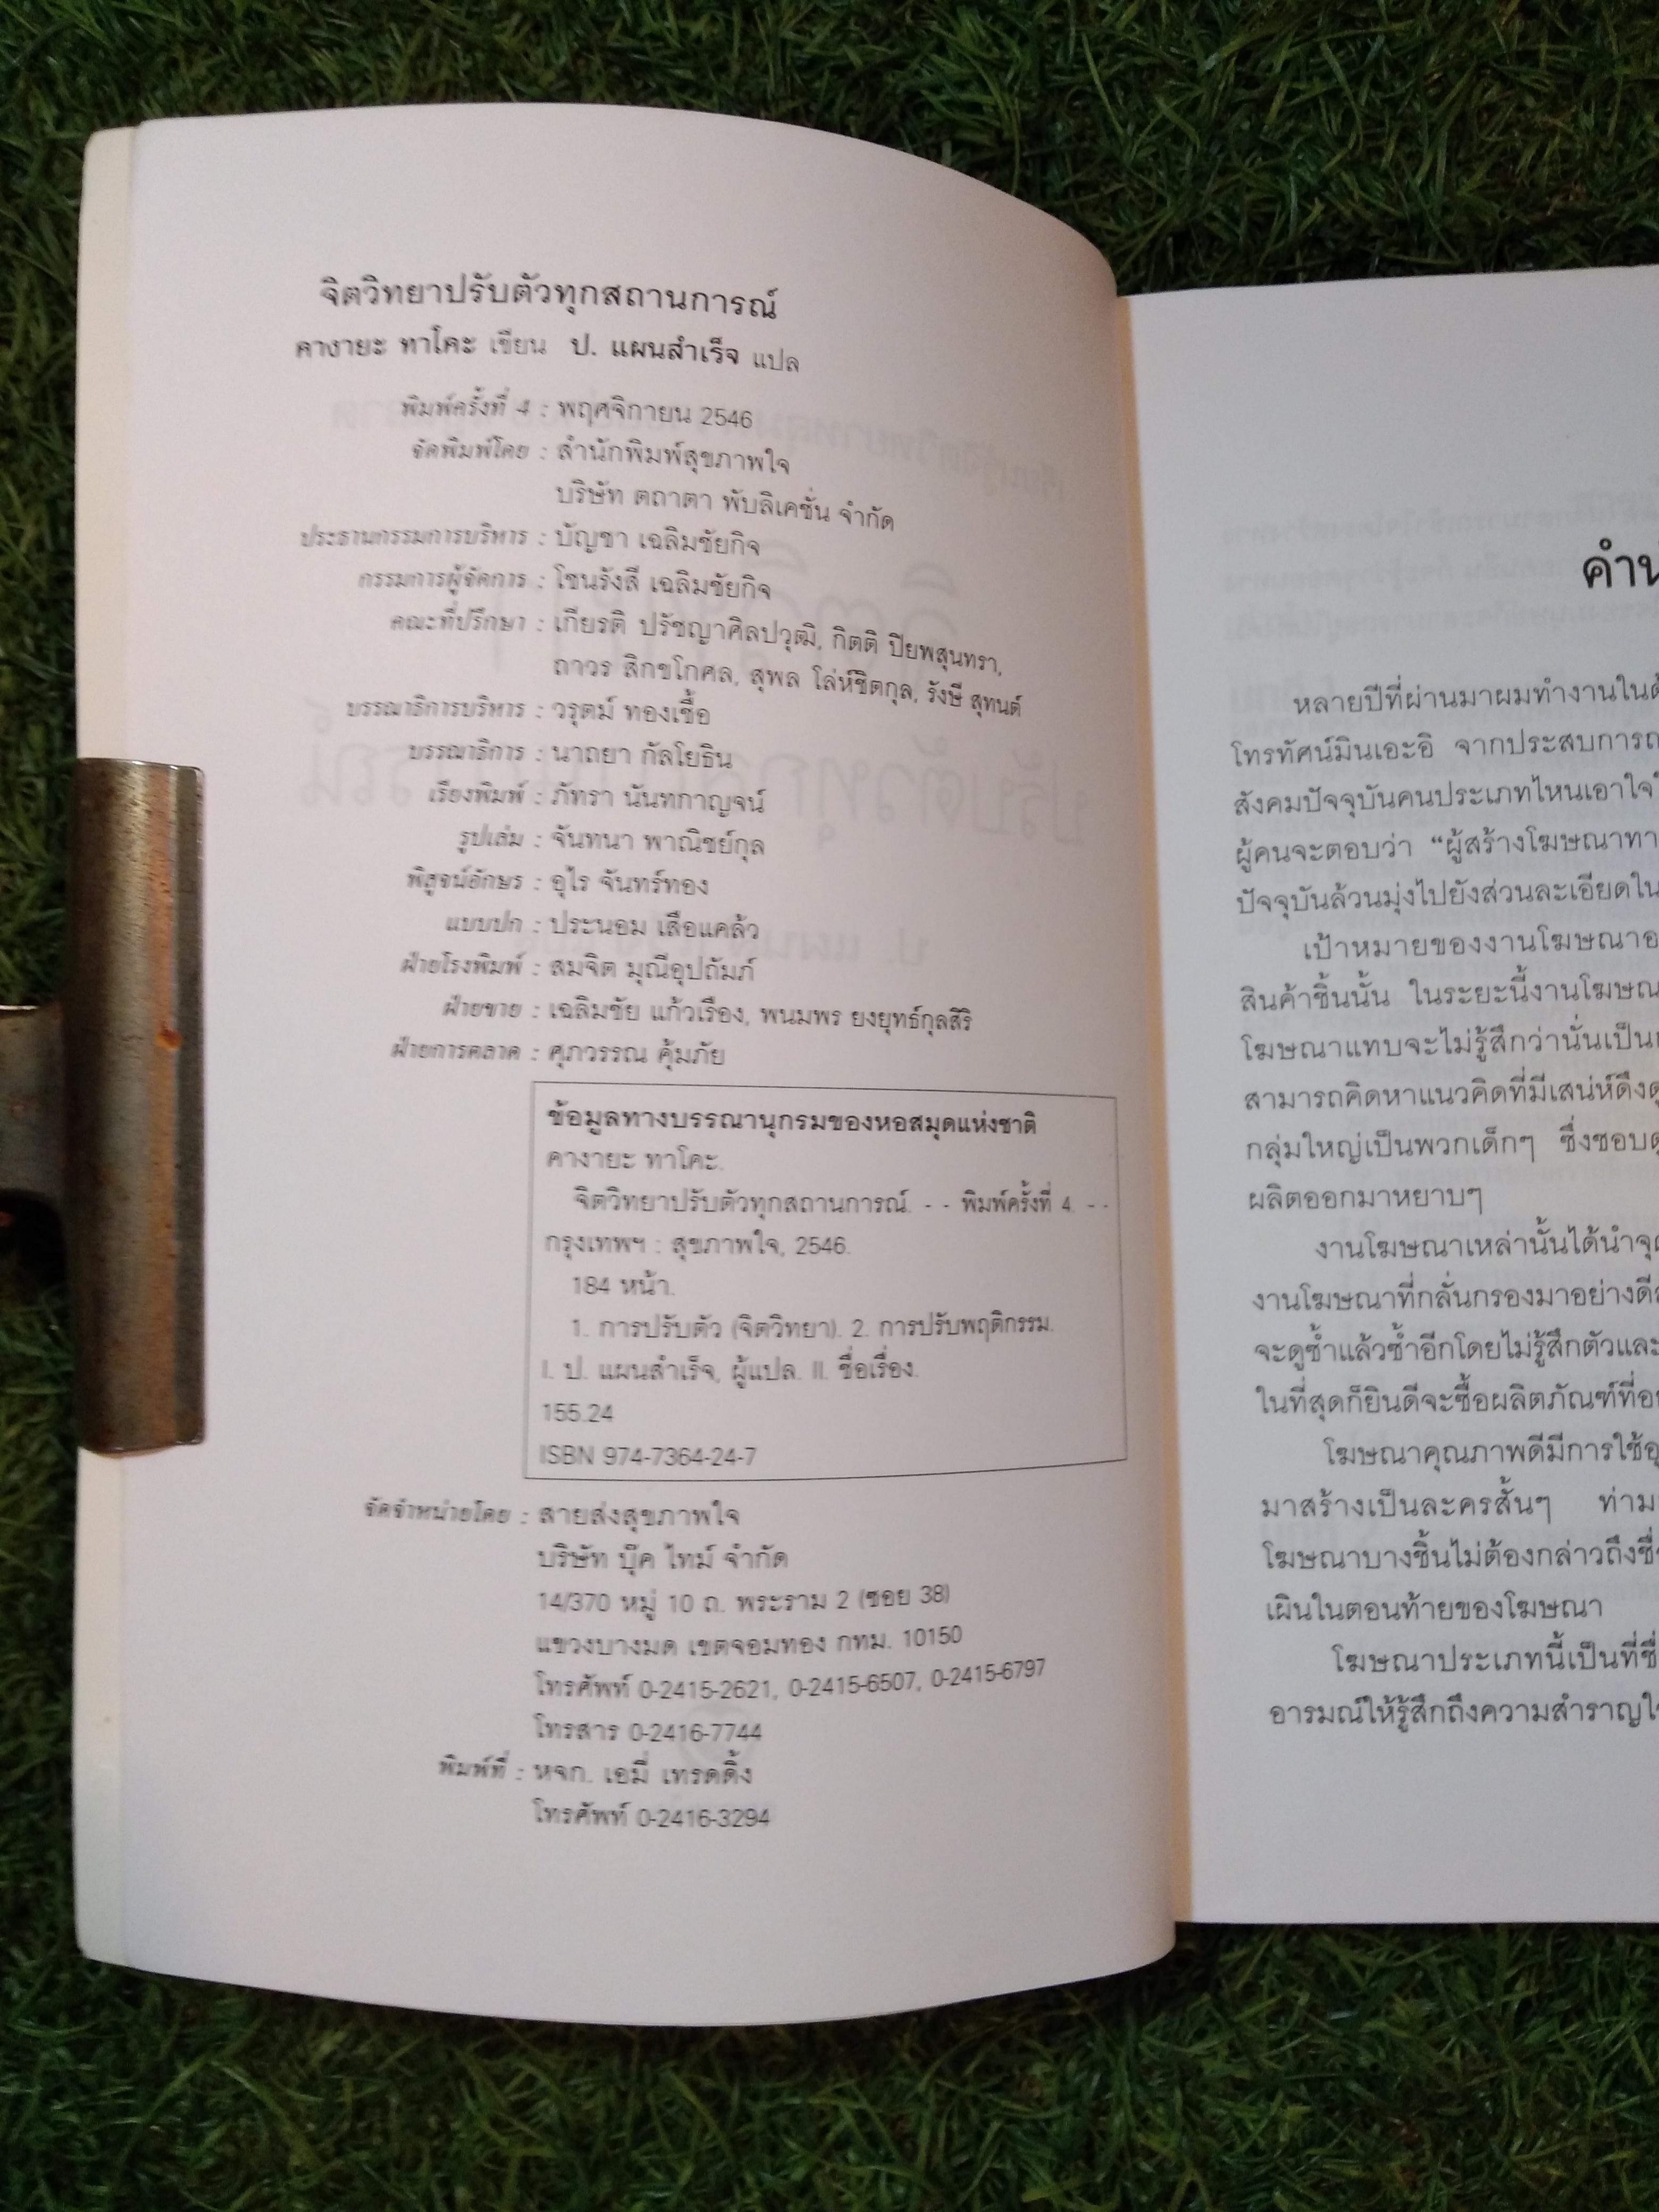 จิตวิทยาปรับตัวทุกสถานการณ์
คางายะ ทาโคะ เขียน ป. แผนสำเร็จ แปล
พิมพ์ครั้งที่ 4 : พฤศจิกายน 2546
จัดพิมพ์โดย : สำนักพิมพ์สุขภาพใจ
บริษัท ตถาตา พับลิเคชั่น จำกัด
ประธานกรรมการบริหาร : บัญชา เฉลิมชัยกิจ
กรรมการผู้จัดการ : โชนรังสี เฉลิมชัยกิจ
คณะที่ปรึกษา : เกียรติ ปรัชญาศิลปวุฒิ, กิตติ ปิยพสุนทรา,
ถาวร สิกขโกศล, สุพล โล่ห์ชิตกุล, รังษี สุทนต์
บรรณาธิการบริหาร : วรุตม์ ทองเชื้อ
บรรณาธิการ : นาถยา กัลโยธิน
เรียงพิมพ์ : ภัทรา นันทกาญจน์
รูปเล่ม : จันทนา พาณิชย์กุล
พิสูจน์อักษร : อุไร จันทร์ทอง
แบบปก : ประนอม เสือแคล้ว
ฝ่ายโรงพิมพ์ : สมจิต มุณีอุปถัมภ์
ฝ่ายขาย : เฉลิมชัย แก้วเรือง, พนมพร ยงยุทธ์กุลสิริ
ฝ่ายการตลาด : ศุภวรรณ คุ้มภัย
ข้อมูลทางบรรณานุกรมของหอสมุดแห่งชาติ
คางายะ ทาโคะ.
จิตวิทยาปรับตัวทุกสถานการณ์. - - พิมพ์ครั้งที่ 4. - -
กรุงเทพฯ : สุขภาพใจ, 2546.
184 หน้า.
1. การปรับตัว (จิตวิทยา). 2. การปรับพฤติกรรม.
I. ป. แผนสำเร็จ, ผู้แปล. II. ชื่อเรื่อง.
155.24
ISBN 974-7364-24-7
จัดจำหน่ายโดย : สายส่งสุขภาพใจ
บริษัท บุ๊ค ไทม์ จำกัด
14/370 หมู่ 10 ถ. พระราม 2 (ซอย 38)
แขวงบางมด เขตจอมทอง กทม. 10150
โทรศัพท์ 0-2415-2621, 0-2415-6507, 0-2415-6797
โทรสาร 0-2416-7744
พิมพ์ที่ : หจก. เอมี่ เทรดดิ้ง
โทรศัพท์ 0-2416-3294
หลายปีที่ผ่านมาผมทำงานใน
โทรทัศน์มินเอะอิ จากประสบการณ
สังคมปัจจุบันคนประเภทไหนเอาใจ
ผู้คนจะตอบว่า “ผู้สร้างโฆษณาทา
ปัจจุบันล้วนมุ่งไปยังส่วนละเอียดใน
เป้าหมายของงานโฆษณาอ
สินค้าชิ้นนั้น ในระยะนี้งานโฆษณ
โฆษณาแทบจะไม่รู้สึกว่านั่นเป็น
สามารถคิดหาแนวคิดที่มีเสน่ห์ดึงดู
กลุ่มใหญ่เป็นพวกเด็กๆ ซึ่งชอบ
ผลิตออกมาหยาบๆ
งานโฆษณาเหล่านั้นได้นำจุ
งานโฆษณาที่กลั่นกรองมาอย่างดี
จะดูซ้ำแล้วซ้ำอีกโดยไม่รู้สึกตัวและ
ในที่สุดก็ยินดีจะซื้อผลิตภัณฑ์ที่อ
โฆษณาคุณภาพดีมีการใช้อุ
มาสร้างเป็นละครสั้นๆ ท่าม
โฆษณาบางชิ้นไม่ต้องกล่าวถึงชื่
เผินในตอนท้ายของโฆษณา
โฆษณาประเภทนี้เป็นที่ชื่
อารมณ์ให้รู้สึกถึงความสำราญใ